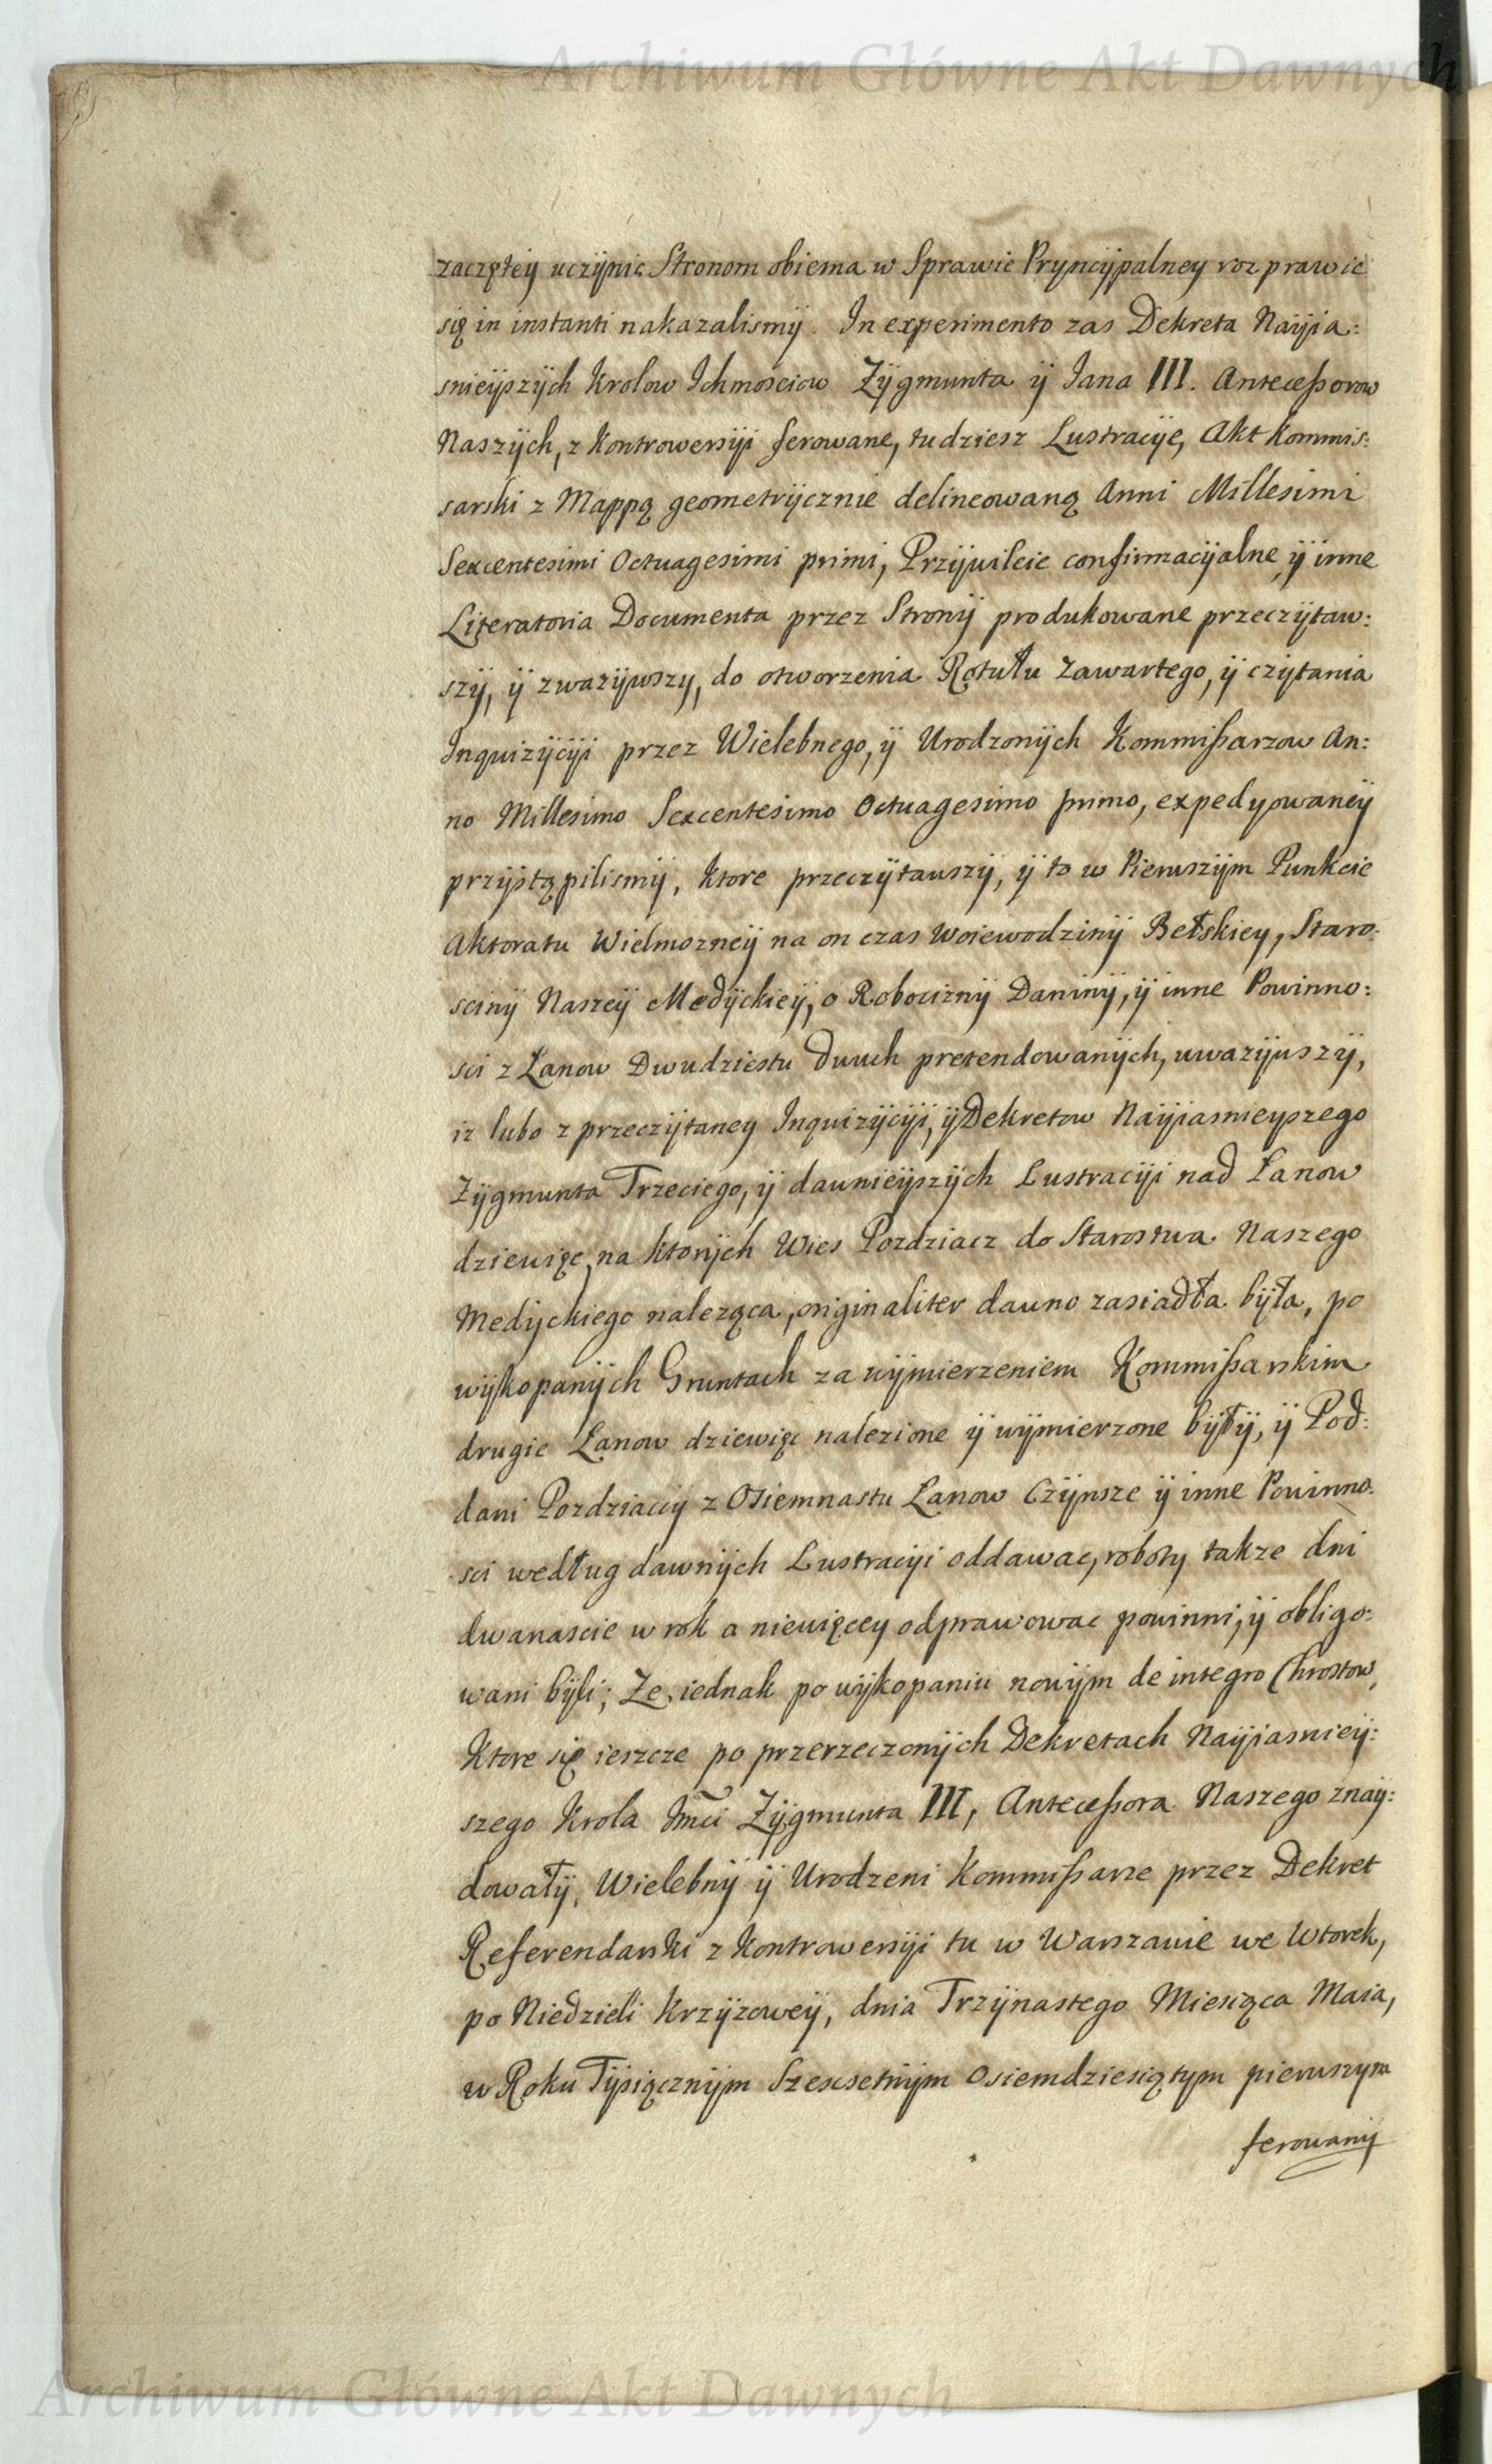 Archiwum Główne Akt Dawnych
zaczętéy uczÿnic Stronom obiema w Sprawie Pryncÿpalney rozprawic
się in instanti nakazalismÿ. In experimento zas Dekreta Naÿia:
snieÿszÿch Krolow Ichmosciow Zÿgmunta ÿ Jana III. Anteceßorow
Naszÿch, z Kontrowersÿi ferowane, tudziesz Lustracÿe, Akt Kommis:
sarski z Mappą geometrÿcznie delineowaną Anni Millesimi
Sexcentesimi Octuagesimi primi, Przÿwileie confirmacÿalne ÿ inne
Literatoria Documenta przez Stronÿ produkowane przeczÿtaw:
szÿ, ÿ zwazÿwszy, do otworzenia Rotułu zawartego, ÿ czÿtania
Inquizÿcÿi przez Wielebnego, ÿ Urodzonÿch Kommißarzow An:
no Millesimo Sexcentesimo Octuagesimo primo, expedyowaneÿ
przÿstąpilismÿ, Ktore przeczÿtawszÿ, ÿ to w Pierwszÿm Punkcie
Aktoratu Wielmozneÿ na on czas Woiewodzinÿ Bełskiey, Staro:
scinÿ Naszeÿ Medÿckieÿ, o Robociznÿ Daninÿ, ÿ inne Powinno:
sci z Łanow Dwudziestu dwuch pretendowanÿch, uwazÿwszÿ,
iz lubo z przeczÿtaney Inquizÿcÿi, ÿ Dekretow Naÿiasnieyszego
Zÿgmunta Trzeciego, ÿ dawnieÿszÿch Lustracÿi nad Łanow
dziewięc, na ktorÿch Wies Pozdziacz do Starostwa Naszego
Medÿckiego nalezące, originaliter dawno zasiadła bÿła, po
wÿkopanÿch Gruntach za wÿmierzeniem Kommißarskim
drugie Łanow dziewięc nalezione ÿ wÿmierzone bÿłÿ, ÿ Pod:
dani Pozdziaccy z Osiemnastu Łanow Czÿnsze ÿ inne Powinno:
sci według dawnÿch Lustracÿi oddawac, roboty takze dni
dwanascie w rok a niewięcey odprawowac powinni, ÿ obligo:
wani bÿli; Ze iednak po wÿkopaniu nowÿm de integro Chrostow,
Ktore się ieszcze po przerzeczonÿch Dekretach Naÿiasnieÿ:
szego Krola Jmci Zÿgmunta III, Anteceßora Naszego znaÿ:
dowałÿ, Wielebnÿ ÿ Urodzeni Kommißarze przez Dekret
Referendarski z Kontrowersÿi tu w Warszawie we Wtorek,
po Niedzieli Krzÿzoweÿ, dnia Trzÿnastego Miesiąca Maia,
w Roku Tÿsiącznÿm Szescsetnÿm Osiemdziesiątym pierwszym
ferowanÿ
Archiwum Główne Akt Dawnych